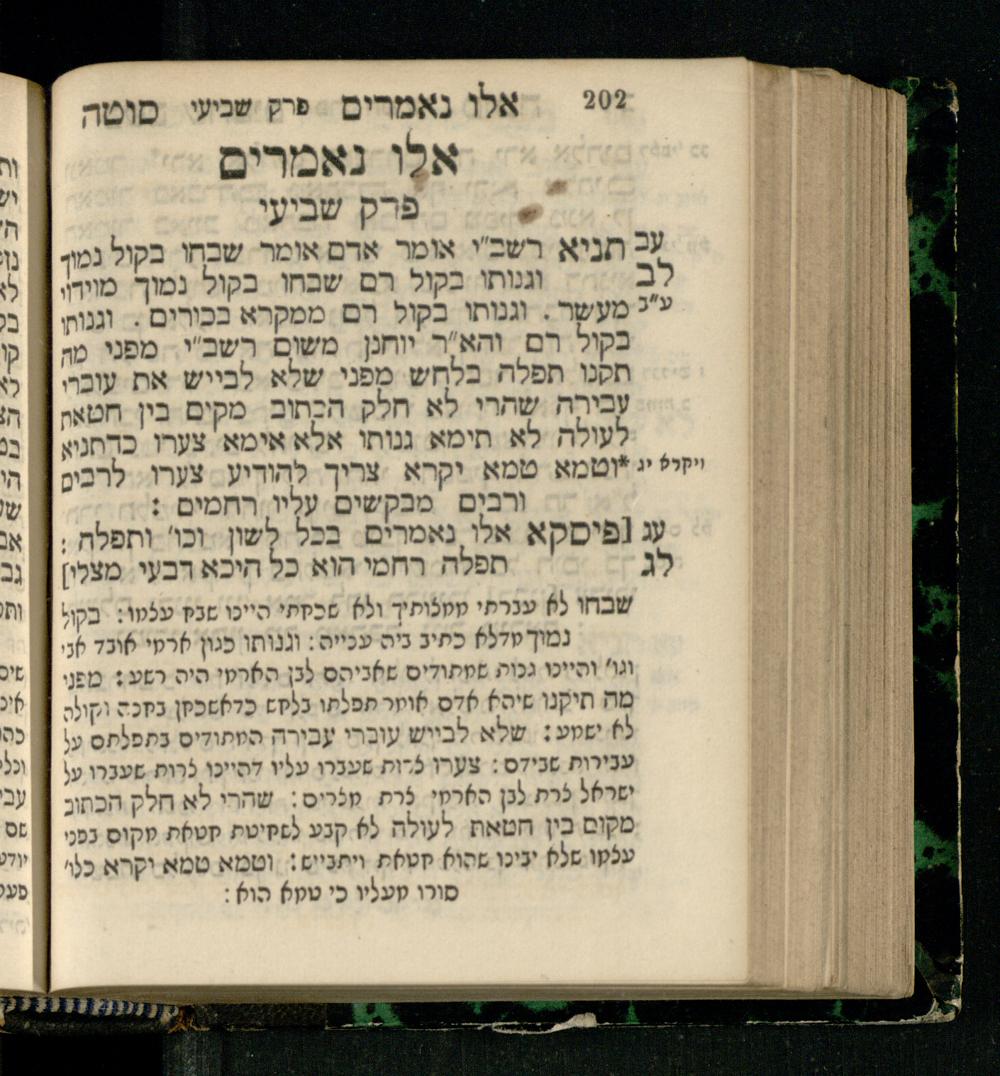 202 אלו נאמרים פרק שביעי סוטה
אלו נאמרים
פרק שביעי
עב תניא רשב״י אומר אדם אומר שבחו בקול נמוך
לב וגנותו בקול רם שבחו בקול נמוך מוידוי
ע״ב מעשר. וגנותו בקול רם ממקרא בכורים. וגנותו
בקול רם והא״ר יוחנן משום רשב״י מפני מה
תקנו תפלה בלחש מפני שלא לבייש את עוברי
עבירה שהרי לא חלק הכתוב מקים בין חטאת
לעולה לא תימא גנותו אלא אימא צערו כדתניא
ויקרא יג *וטמא טמא יקרא צריך להודיע צערו לרבים
ורבים מבקשים עליו רחמים :
עג [פיסקא אלו נאמרים בכל לשון וכו׳ ותפלה :
לג תפלה רחמי הוא כל היכא דבעי מצלי]
שבחו לא עברתי ממצותיך ולא שכחתי היינו שבח עצמו: בקול
נמוך מדלא כתיב ביה ענייה: וגנותו כגון ארמי אובד אבי
וגו׳ והיינו גנות שמתודים שאביהם לבן הארמי היה רשע: מפני
מה תיקנו שיהא אדם אומר תפלתו בלחש כדאשכחן בחנה וקולה
לא ישמע: שלא לבייש עוברי עבירה המתודים בתפלתם על
עבירות שבידם: צערו צרות שעברו עליו דהיינו צרות שעברו על
ישראל צרת לבן הארמי צרת מצרים: שהרי לא חלק הכתוב
מקום בין חטאת לעולה לא קבע לשחיטת חטאת מקום בפני
עצמו שלא יבינו שהוא חטאת ויתבייש: וטמא טמא יקרא כלו׳
סורו מעליו כי טמא הוא: